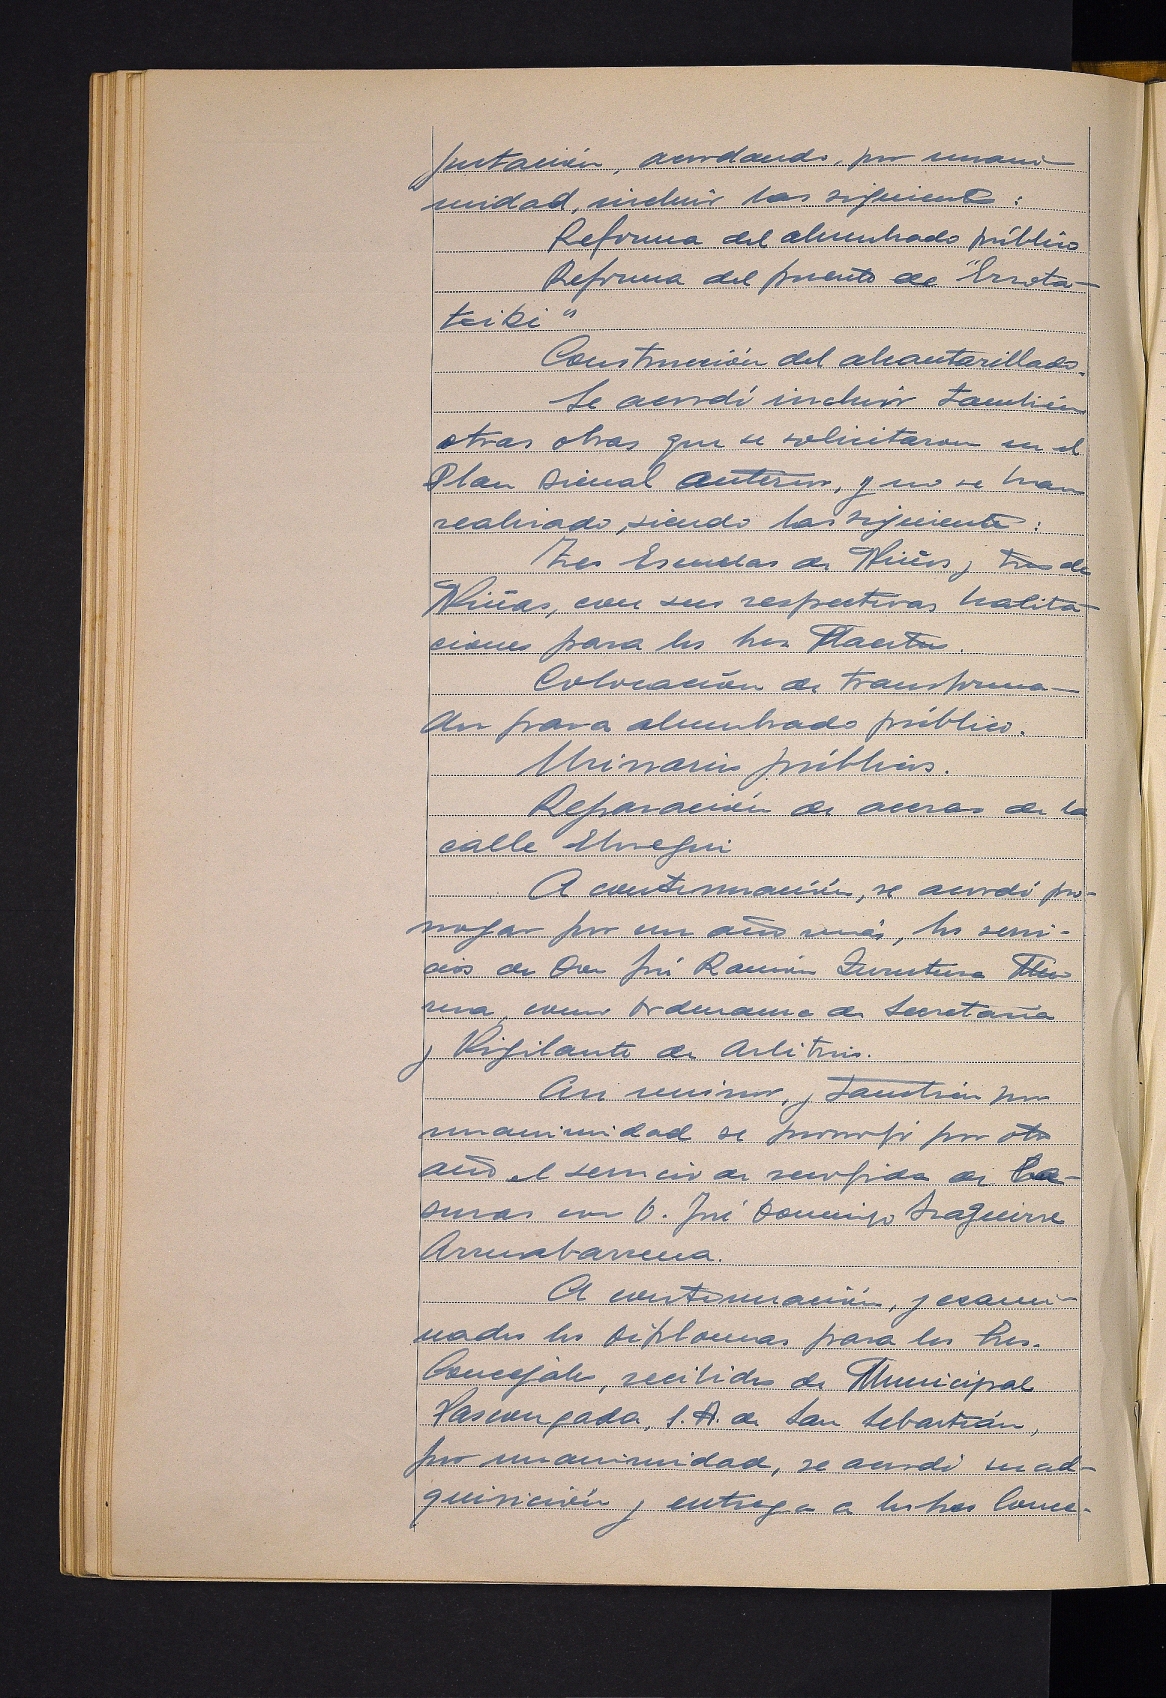 putación, acordando, por unani-
midad, incluir las siguientes:
Reforma del alumbrado público
Reforma del puente de "Errota-
txiki"
Construcción del alcantarillado.
Se acordó incluir también
otras obras que se solicitaron en el
Plan Bienal anterior, y no se han
realizado, siendo las siguientes:
Tres Escuelas de Niños y tres de
Niñas, con sus respectivas habita-
ciones para los Sres. Maestros.
Colocación de transforma-
dor para alumbrado público.
Urinarios públicos.
Reparación de aceras de la
calle Elosegui
A continuación, se acordó pro-
rrogar por un año más, los servi-
cios de Don José Ramón Zurutuza
como Ordenanza de Secretaría
y Vigilante de Arbitrios.
Así mismo, y también por
unanimidad se prorrogó por otro
año el servicio de recogida de Ba-
suras con D. José Domingo Izaguirre
Arruabarrena.
A continuación, y exami-
nados los Diplomas para los Sres.
Concejales, recibidos de Municipal
Vascongada, S.A. de San Sebastián,
por unanimidad, se acordó su ad-
quisición y entrega a los Sres Conce-